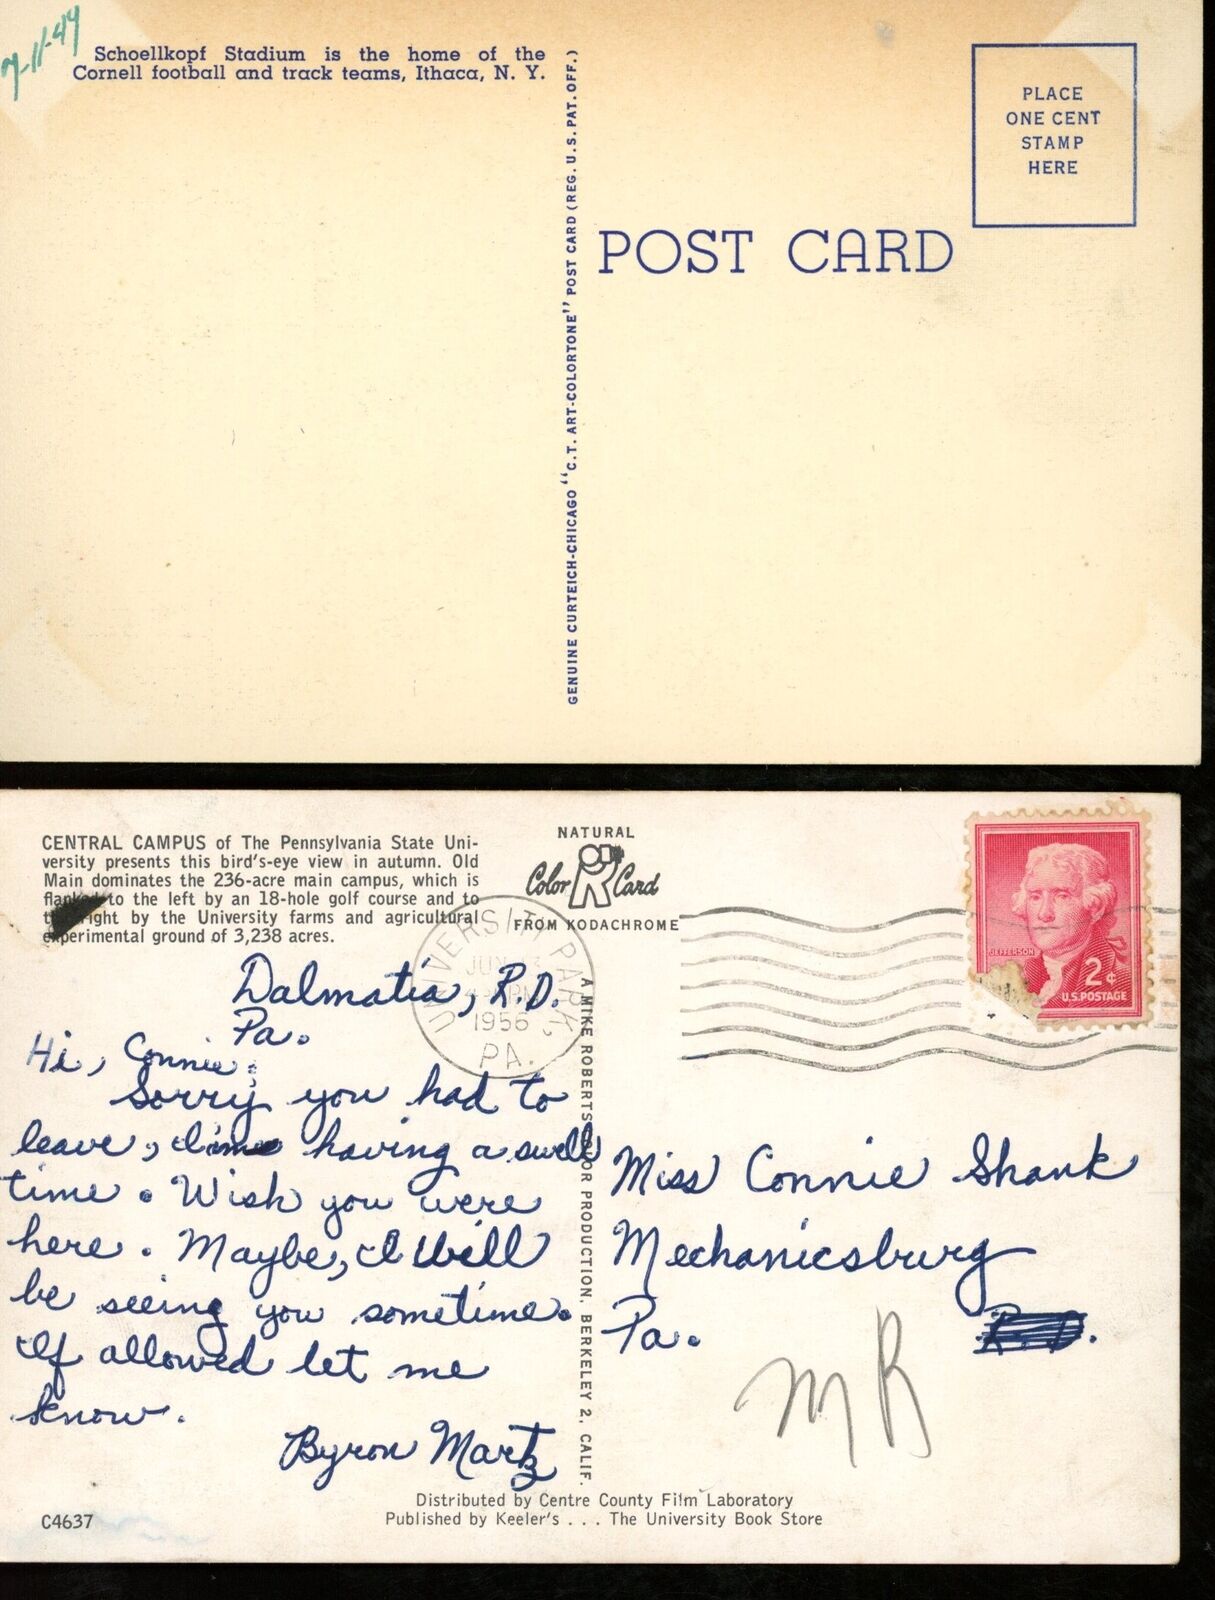 7-11-49
Schoellkopf Stadium is the home of the
Cornell football and track teams, Ithaca, N. Y.
GENUINE CURTEICH-CHICAGO "C.T. ART-COLORTONE" POST CARD (REG. U.S. PAT. OFF.)
PLACE
ONE CENT
STAMP
HERE
POST CARD
CENTRAL CAMPUS of The Pennsylvania State Uni-
versity presents this bird's-eye view in autumn. Old
Main dominates the 236-acre main campus, which is
flanked to the left by an 18-hole golf course and to
the right by the University farms and agricultural
experimental ground of 3,238 acres.
NATURAL
Color Card
FROM KODACHROME
UNIVERSITY PARK
JUN
PM
1956
PA.
JEFFERSON
2¢
U.S. POSTAGE
Dalmatia, R.D.
Pa.
Hi, Connie,
Sorry you had to
leave, I'm having a swell
time. Wish you were
here. Maybe, I will
be seeing you sometime.
If allowed let me
know.
Byron Martz
A MIKE ROBERTS COLOR PRODUCTION, BERKELEY 2, CALIF.
Miss Connie Shank
Mechanicsburg
Pa. R.D.
MR
Distributed by Centre County Film Laboratory
C4637 Published by Keeler's . . . The University Book Store